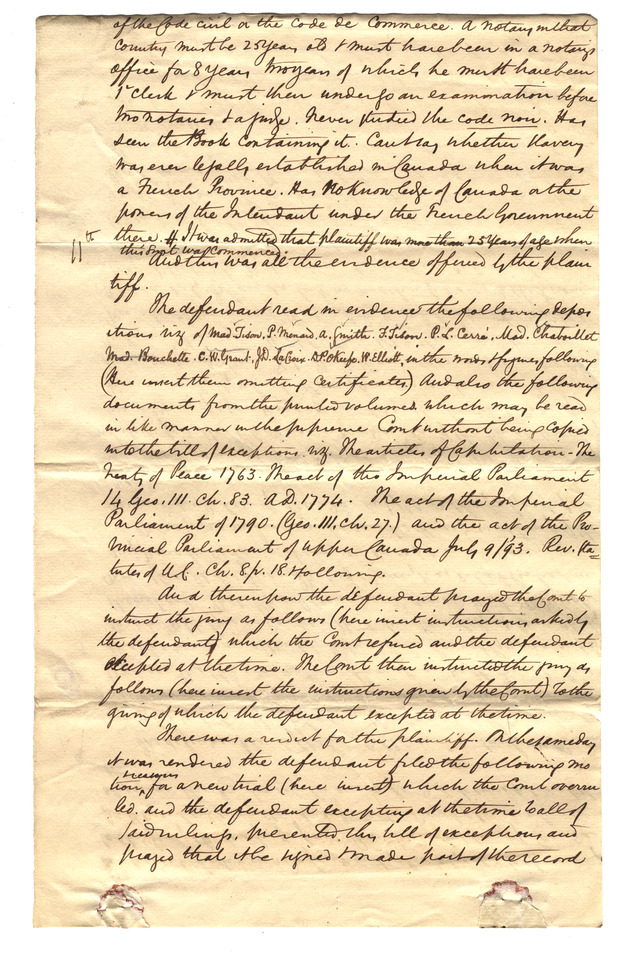 of the Code civil or the Code de Commerce. A notary in that
country must be 25 years old & must have been in a notary's
office for 8 years two years of which he must have been
1st clerk & must then undergo an examination before
two notaries & a judge. Never studied the code noir. Has
seen the Book containing it. Cant say whether slavery
was ever legally established in Canada when it was
a French Province. Has no knowledge of Canada or the
powers of the Intendant under the French Government
there. # It was admitted that plaintiff was more than 25 years of age when
this suit was commenced
11th
And this was all the evidence offered by the plain
tiff.
The defendant read in evidence the following depos
itions viz of Mad Tison, P. Menard, A. Smith. F. Tison. P. L. Cerré, Mad. Chaboillet
Mad. Bouchette. C. W. Grant, J.D. LaCroix. W. Elliott, in the words & figures following
(Here insert them omitting certificates) And also the following
documents from the printed volumes, which may be read
in like manner in the supreme Court without being copied
into the bill of exceptions. viz. The articles of Capitulation - The
treaty of Peace 1763. The act of the Imperial Parliament
14 Geo. III. ch. 83. A.D. 1774. The act of the Imperial
Parliament of 1790. (Geo. III. ch. 27.) and the act of the Pro-
vincial Parliament of upper Canada July 9/93. Rev. Sta-
tutes of U.C. Ch. 8 p. 18 & following.
And thereupon the defendant prayed the Court to
instruct the jury as follows (here insert instructions asked by
the defendant) which the Court refused and the defendant
excepted at the time. The Court then instructed the jury as
follows (here insert the instructions given by the Court) To the
giving of which the defendant excepted at the time.
There was a verdict for the plaintiff. On the same day
it was rendered the defendant filed the following mo
reasons
tion for a new trial (here insert) which the Court overru
led. and the defendant excepting at the time to all of
said rulings, presented this bill of exceptions and
prayed that it be signed & made part of the record